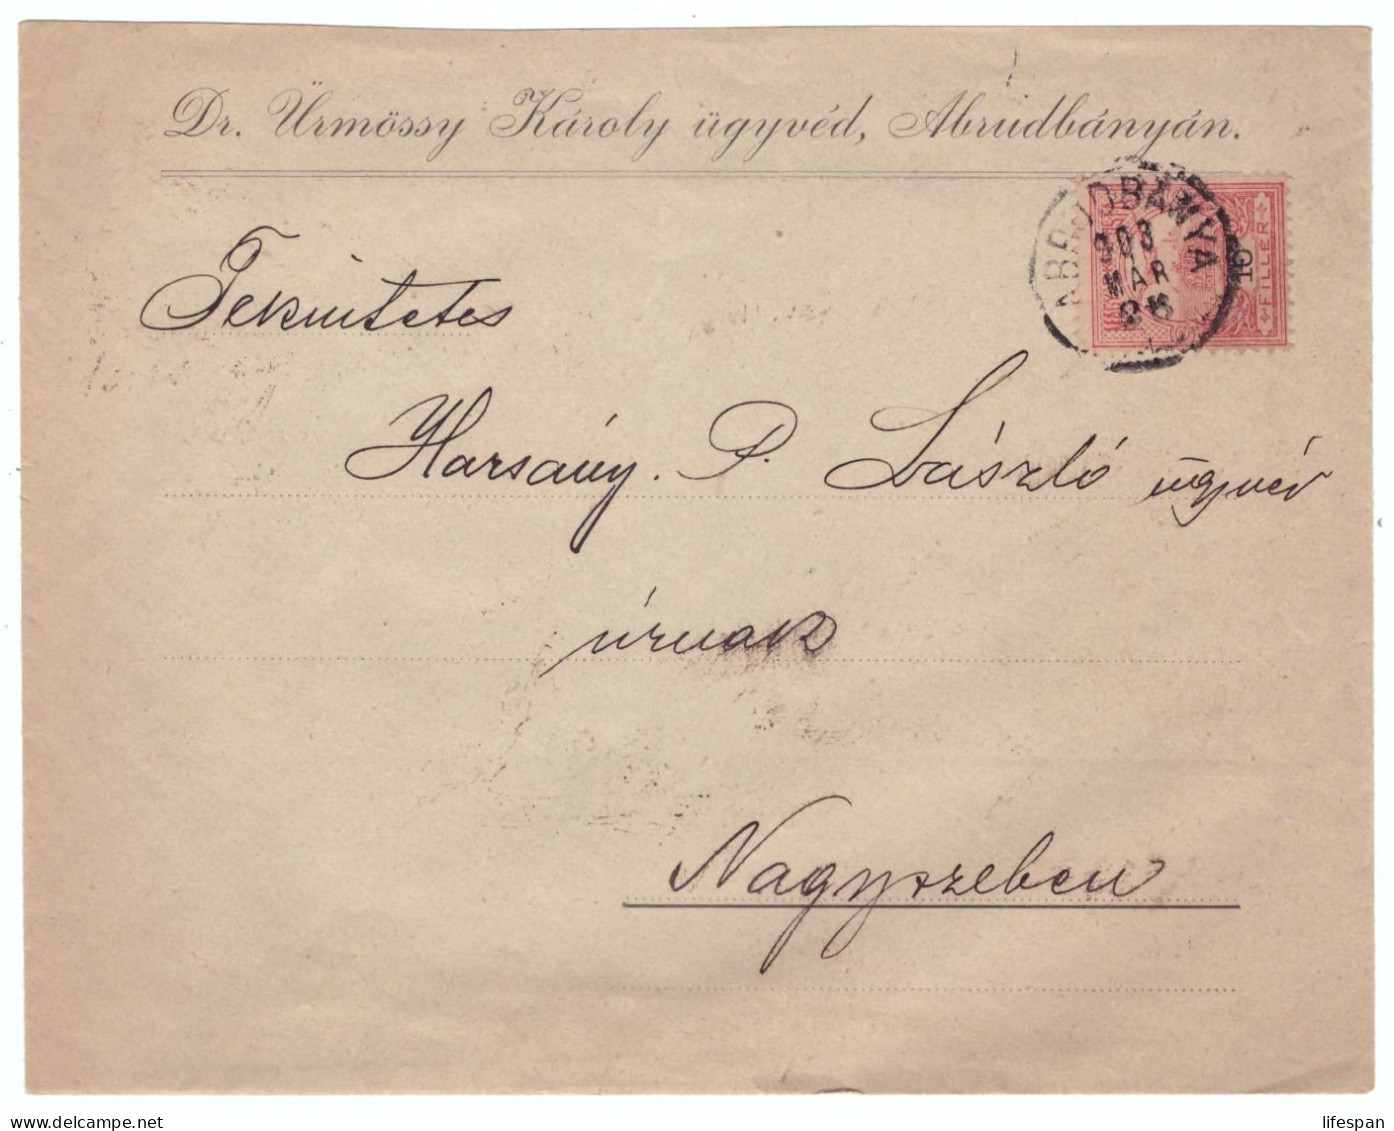 Dr. Ürmössy Károly ügyvéd, Abrudbányán.
ABRUDBÁNYA
903
MÁR
10
FILLÉR
Tekintetes
Harsány. P. László ügyvéd
úrnak
Nagyszeben
www.delcampe.net
lifespan